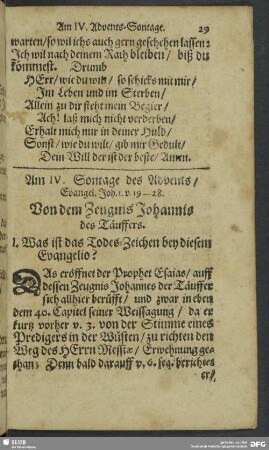 Am IV. Advents-Sontage. 29
warten/so wil ichs auch gern geschehen lassen:
Ich wil nach deinem Rath bleiben/ biß du
kömmest. Drumb
HErr/ wie du wilt/ so schicks mit mir/
Im Leben und im Sterben/
Allein zu dir steht mein Begier/
Ach! laß mich nicht verderben/
Erhalt mich nur in deiner Huld/
Sonst/ wie du wilt/ gib mir Gedult/
Dein Will der ist der beste/ Amen.
Am IV. Sontage des Advents/
Evangel. Joh. 1. v. 19–28.
Von dem Zeugnis Johannis
des Täuffers.
I. Was ist das Todes-Zeichen bey diesem
Evangelio?
DAs eröffnet der Prophet Esaias/ auff
dessen Zeugnis Johannes der Täuffer
sich allhier berüfft/ und zwar in eben
dem 40. Capitel seiner Weissagung/ da er
kurtz vorher v. 3. von der Stimme eines
Predigers in der Wüsten/ zu richten den
Weg des HErrn Messiæ/ Erwehnung ge-
than: Denn bald darauff v. 6. seq. berichtet
er/
SLUB
DFG